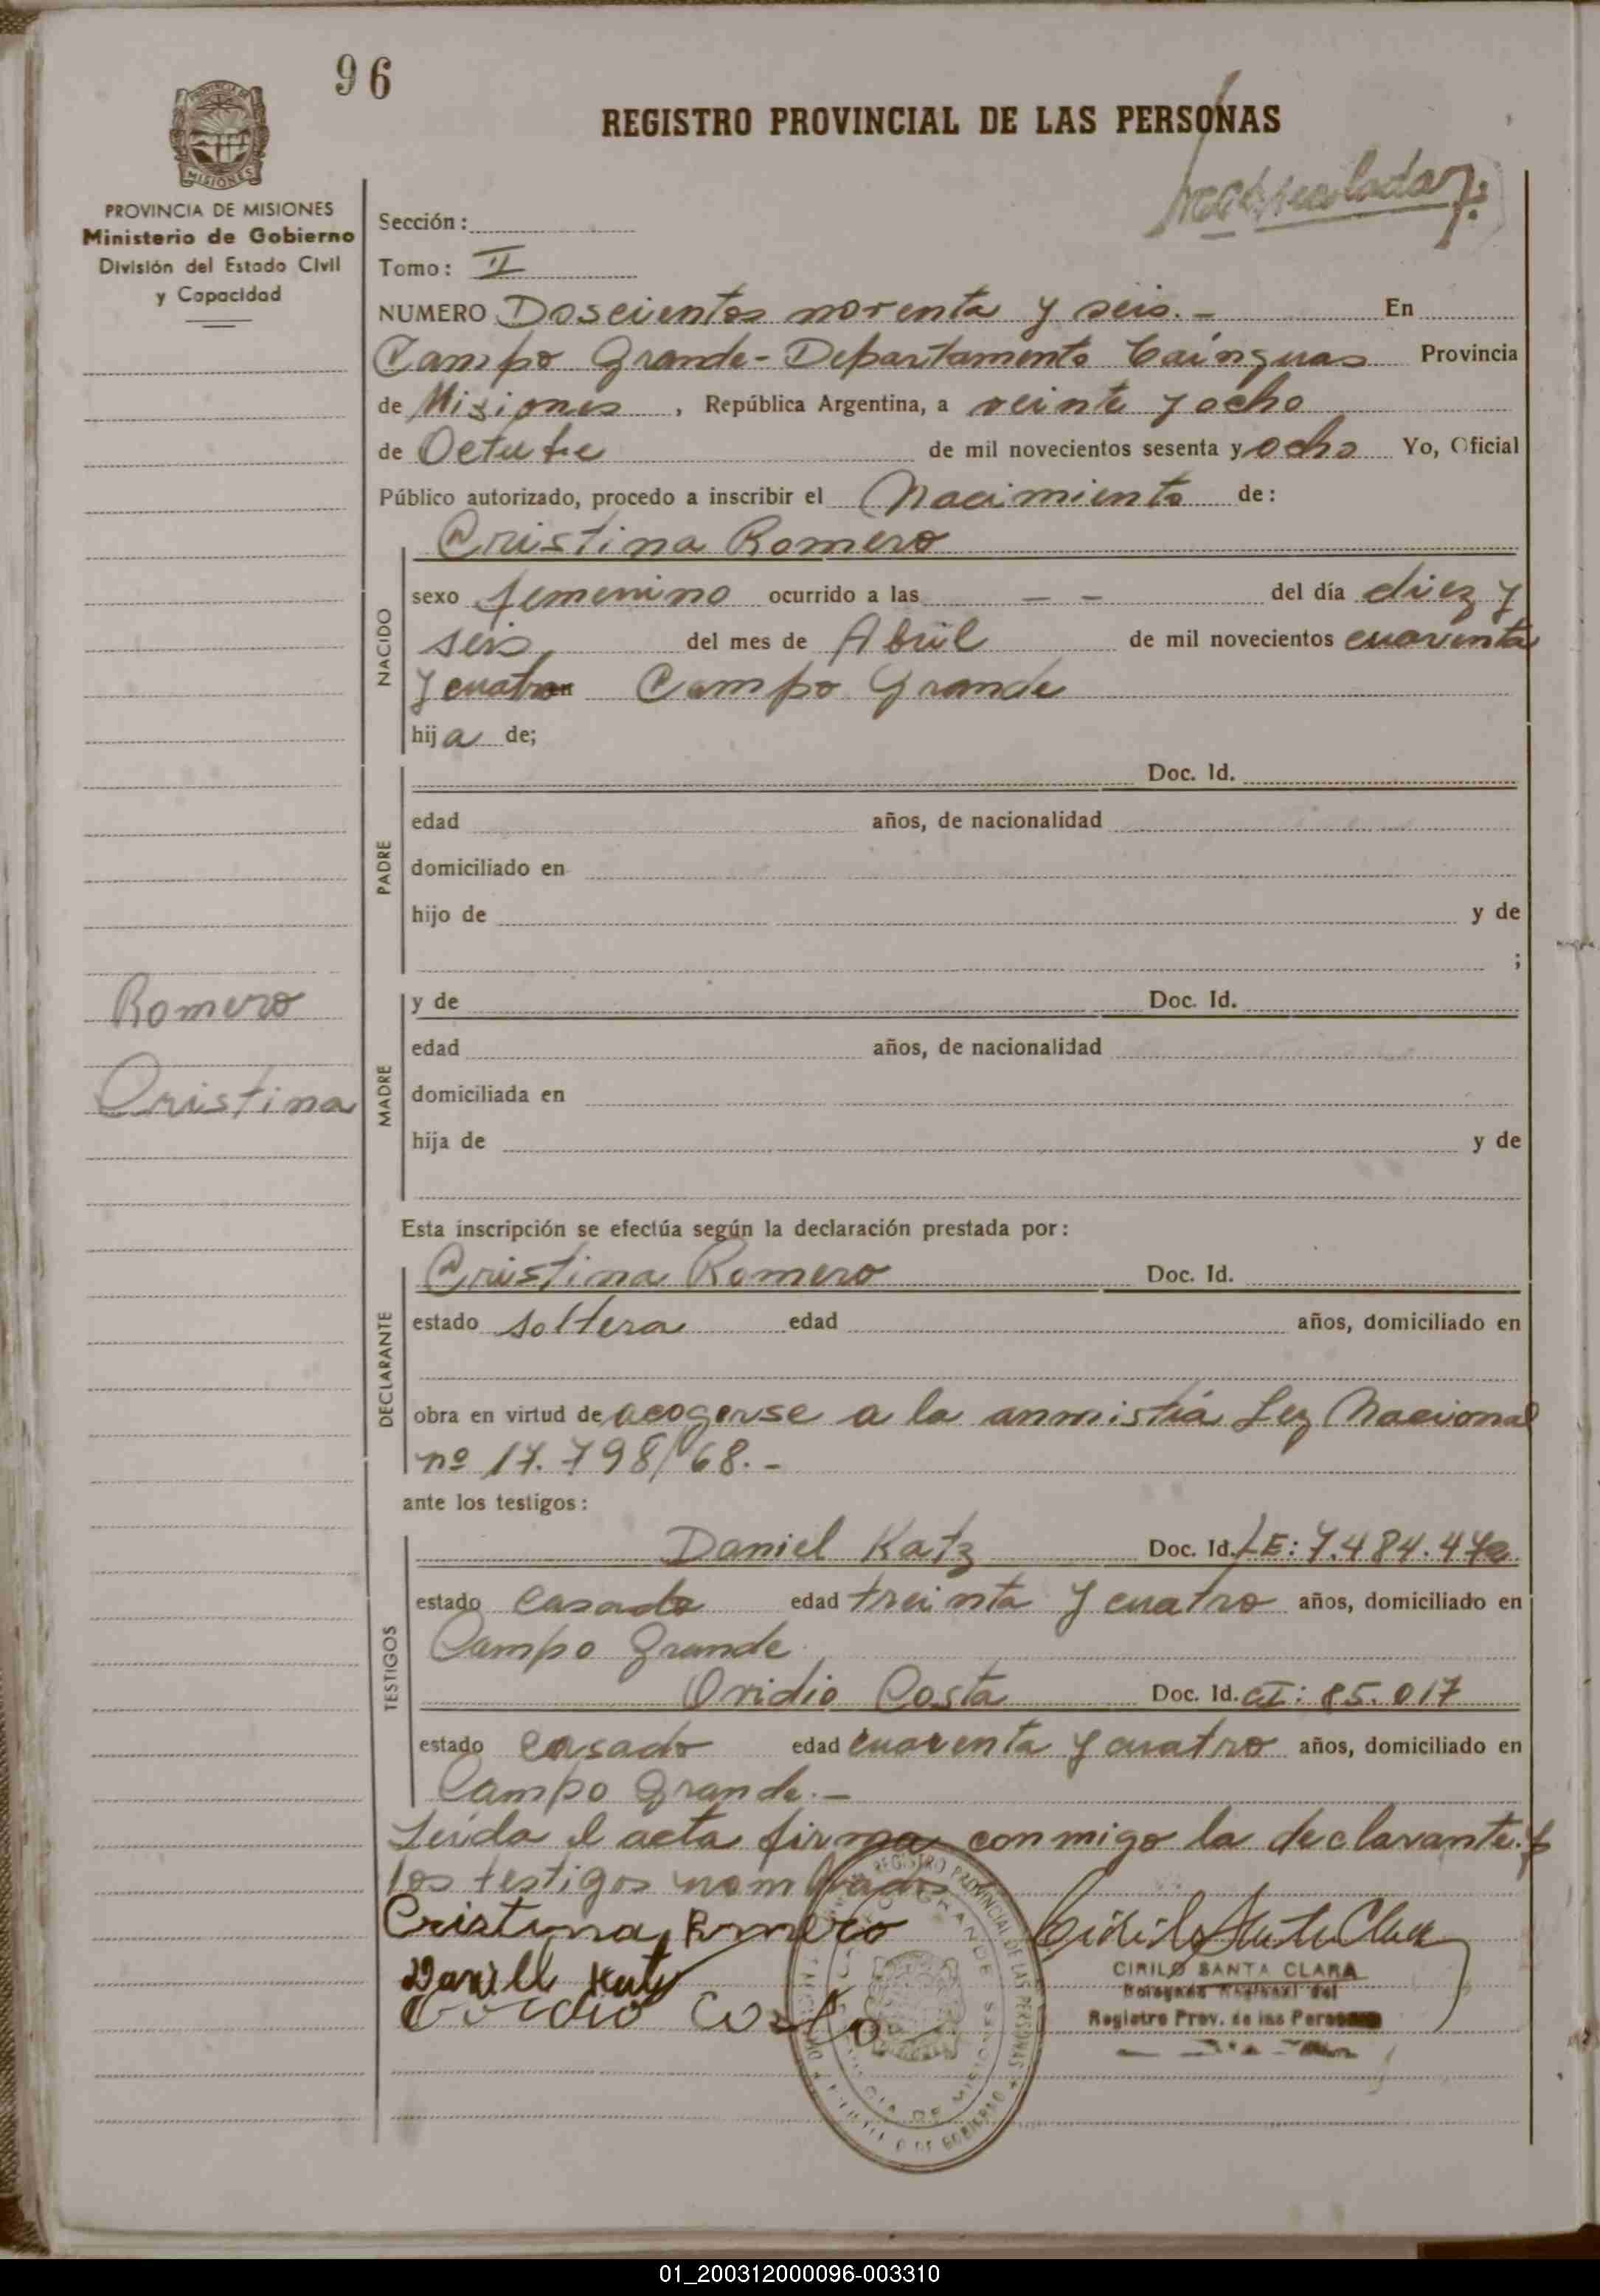 96
REGISTRO PROVINCIAL DE LAS PERSONAS
PROVINCIA DE MISIONES
Ministerio de Gobierno
División del Estado Civil
y Capacidad
Sección:
Tomo: II
NUMERO Doscientos noventa y seis. - En
Campo Grande - Departamento Cainguas Provincia
de Misiones, República Argentina, a veinte y ocho
de Octubre de mil novecientos sesenta y ocho Yo, Oficial
Público autorizado, procedo a inscribir el Nacimiento de:
Cristina Romero
NACIDO
sexo femenino ocurrido a las - - del día diez y
seis del mes de Abril de mil novecientos cuarenta
y cuatro Campo Grande
hija de;
PADRE
Doc. Id.
edad años, de nacionalidad
domiciliado en
hijo de y de
;
Romero
Cristina
MADRE
y de Doc. Id.
edad años, de nacionalidad
domiciliada en
hija de y de
Esta inscripción se efectúa según la declaración prestada por:
DECLARANTE
Cristina Romero Doc. Id.
estado soltera edad años, domiciliado en
obra en virtud de acogerse a la anmistiá Ley Nacional
nº 17.798/68. -
ante los testigos:
TESTIGOS
Daniel Katz Doc. Id. LE: 7.484.472
estado casado edad treinta y cuatro años, domiciliado en
Campo Grande
Ovidio Costa Doc. Id. CI: 85.017
estado casado edad cuarenta y cuatro años, domiciliado en
Campo Grande. -
Leída el acta firma conmigo la declarante y
los testigos nombrados
Cristina Romero
Daniel Katz
Ovidio Costa
Cirilo Santa Clara
CIRILO SANTA CLARA
Delegado Regional del
Registro Prov. de las Personas
REGISTRO PROVINCIAL DE LAS PERSONAS
01_200312000096-003310